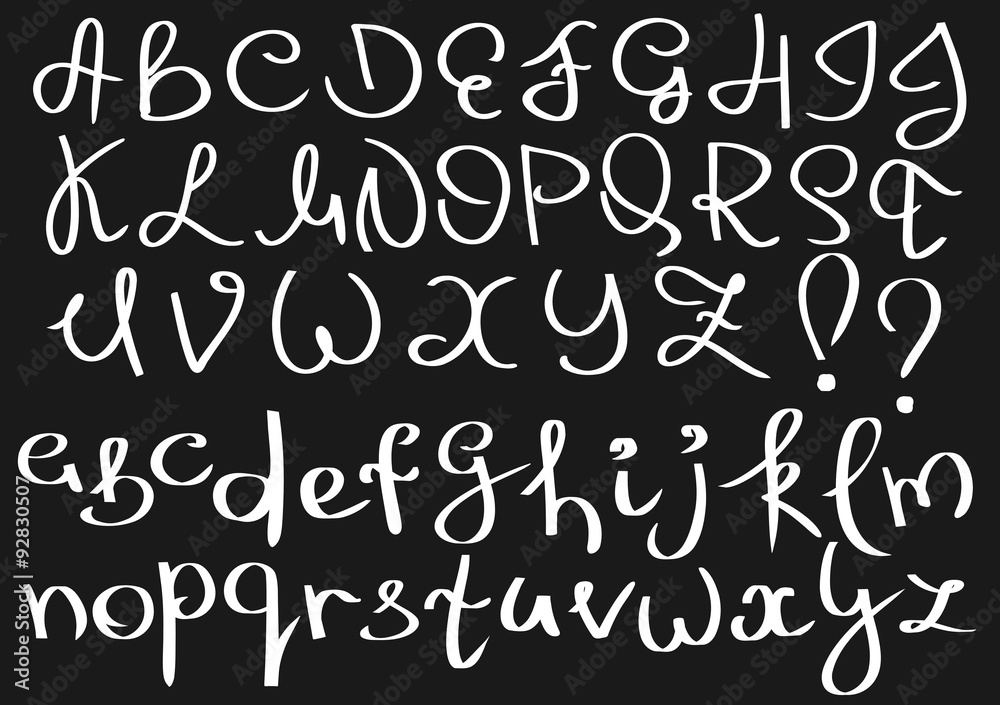 A B C D E F G H I J
K L M N O P Q R S T
U V W X Y Z ! ?
a b c d e f g h i j k l m
n o p q r s t u v w x y z
Adobe Stock | #92830507